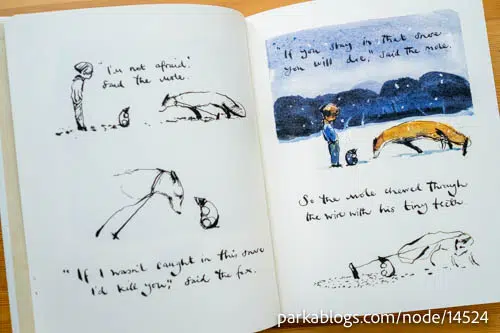 "I'm not afraid."
said the mole.
"If I wasn't caught in this snare
I'd kill you," said the fox.
"If you stay in that snare
you will die," said the mole.
So the mole chewed through
the wire with his tiny teeth.
parkablogs.com/node/14524